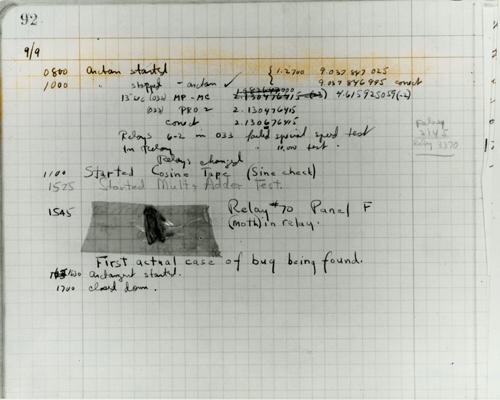 92
9/9
0800 Antan started { 1.2700 9.037 847 025
1000 " stopped - antan ✓ 9.037 846 995 conect
13"uc (032) MP - MC 2.130476415 (-3) 4.615925059(-2)
(033) PRO 2 2.130476415
conect 2.130676415
Relays 6-2 in 033 failed special speed test
In Relay " 10.000 test.
Relay
2145
Relay 3370
Relays changed
1100 Started Cosine Tape (Sine check)
1525 Started Mult+ Adder Test.
1545 Relay #70 Panel F
(Moth) in relay.
First actual case of bug being found.
1630 antangent started.
1700 closed down.